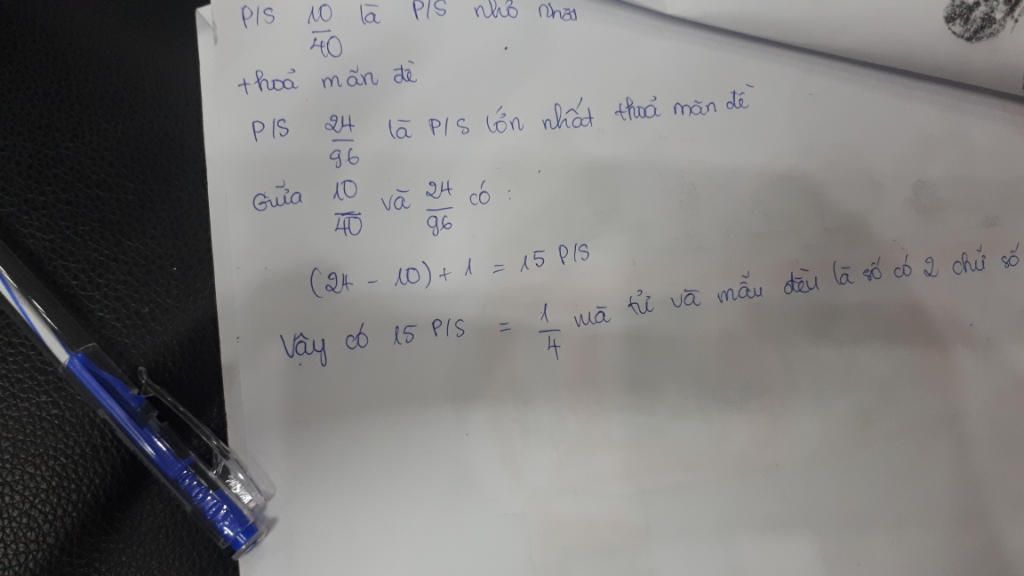 P/S 10/40 là P/S nhỏ nhất
thoả mãn đề
P/S 24/96 là P/S lớn nhất thoả mãn đề
Giữa 10/40 và 24/96 có :
(24 - 10) + 1 = 15 P/S
Vậy có 15 P/S = 1/4 mà tử và mẫu đều là số có 2 chữ số